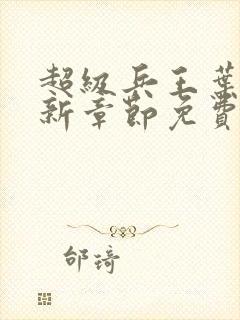 超级兵王葉
新章節免費
邰琦